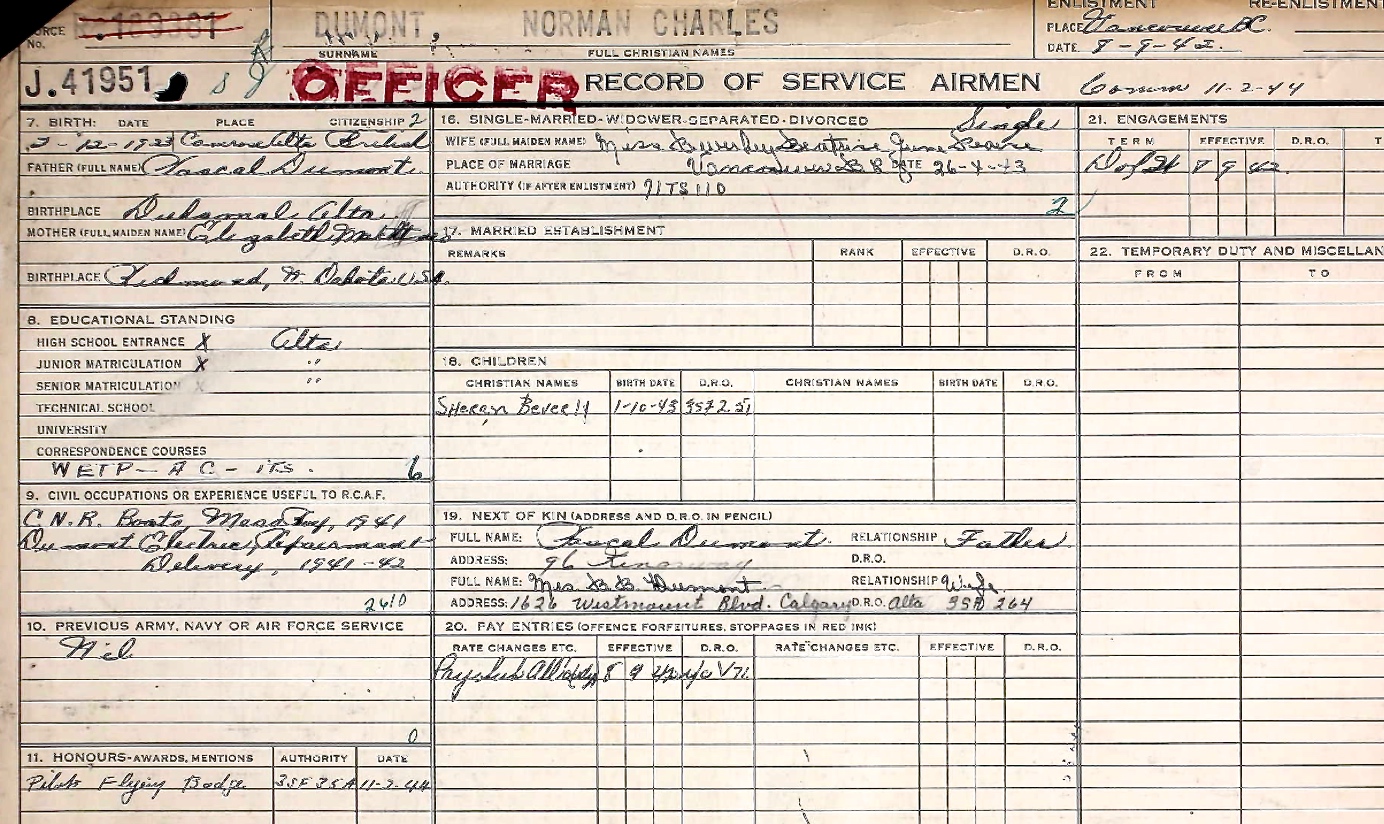 ORCE No. R.169381 DUMONT, NORMAN CHARLES
SURNAME FULL CHRISTIAN NAMES
ENLISTMENT RE-ENLISTMENT
PLACE Vancouver BC.
DATE 8-9-42.
J.41951 OFFICER RECORD OF SERVICE AIRMEN Comm 11-2-44
7. BIRTH: DATE PLACE CITIZENSHIP 2
12-1923 Camrose Alta British
FATHER (FULL NAME) Pascal Dumont.
BIRTHPLACE Duhamal Alta
MOTHER (FULL MAIDEN NAME) Elizabeth
BIRTHPLACE Richmond, N. Dakota. USA.
8. EDUCATIONAL STANDING
HIGH SCHOOL ENTRANCE X Alta
JUNIOR MATRICULATION X "
SENIOR MATRICULATION X "
TECHNICAL SCHOOL
UNIVERSITY
CORRESPONDENCE COURSES
WETP - AC - ITS. 6
9. CIVIL OCCUPATIONS OR EXPERIENCE USEFUL TO R.C.A.F.
C.N.R. Boats, Mess Boy, 1941
Dumont Electric, Repairman &
Delivery, 1941-42
2610
10. PREVIOUS ARMY, NAVY OR AIR FORCE SERVICE
Nil
0
11. HONOURS-AWARDS, MENTIONS AUTHORITY DATE
Pilots Flying Badge 3SF35A 11-2-44
16. SINGLE-MARRIED-WIDOWER-SEPARATED-DIVORCED Single
WIFE (FULL MAIDEN NAME) Miss Beverley Beatrice June Pearce
PLACE OF MARRIAGE Vancouver B.C. DATE 26-4-43
AUTHORITY (IF AFTER ENLISTMENT) 7ITS110
2
17. MARRIED ESTABLISHMENT
REMARKS RANK EFFECTIVE D.R.O.
18. CHILDREN
CHRISTIAN NAMES BIRTH DATE D.R.O. CHRISTIAN NAMES BIRTH DATE D.R.O.
1-10-43
19. NEXT OF KIN (ADDRESS AND D.R.O. IN PENCIL)
FULL NAME: Pascal Dumont. RELATIONSHIP Father
ADDRESS: 96 D.R.O.
FULL NAME: Mrs. B.B. Dumont RELATIONSHIP Wife
ADDRESS: 1626 Westmount Blvd. Calgary D.R.O. Alta 264
20. PAY ENTRIES (OFFENCE FORFEITURES, STOPPAGES IN RED INK)
RATE CHANGES ETC. EFFECTIVE D.R.O. RATE CHANGES ETC. EFFECTIVE D.R.O.
8 9 42
21. ENGAGEMENTS
TERM EFFECTIVE D.R.O. T
8 9 42
22. TEMPORARY DUTY AND MISCELLAN
FROM TO